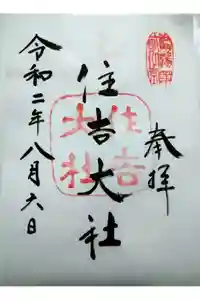 奉拝
住吉大社
住吉大社
令和二年八月六日